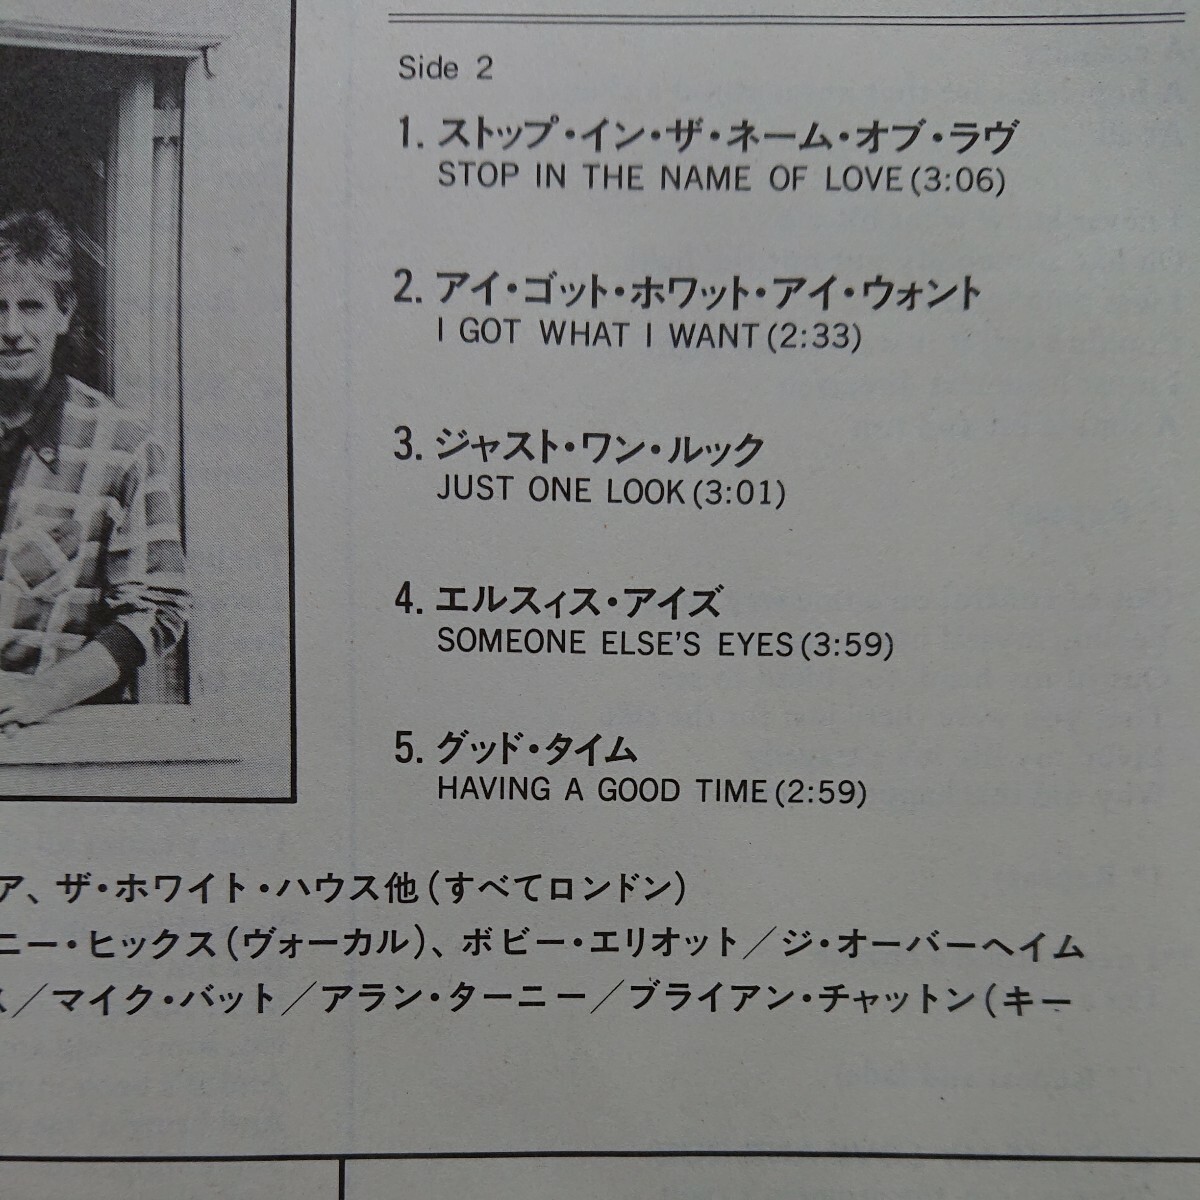 Side 2
1. ストップ・イン・ザ・ネーム・オブ・ラヴ
STOP IN THE NAME OF LOVE(3:06)
2. アイ・ゴット・ホワット・アイ・ウォント
I GOT WHAT I WANT(2:33)
3. ジャスト・ワン・ルック
JUST ONE LOOK(3:01)
4. エルスィス・アイズ
SOMEONE ELSE'S EYES(3:59)
5. グッド・タイム
HAVING A GOOD TIME(2:59)
ア、ザ・ホワイト・ハウス他(すべてロンドン)
ニー・ヒックス(ヴォーカル)、ボビー・エリオット／ジ・オーバーヘイム
ス／マイク・バット／アラン・ターニー／ブライアン・チャットン(キー